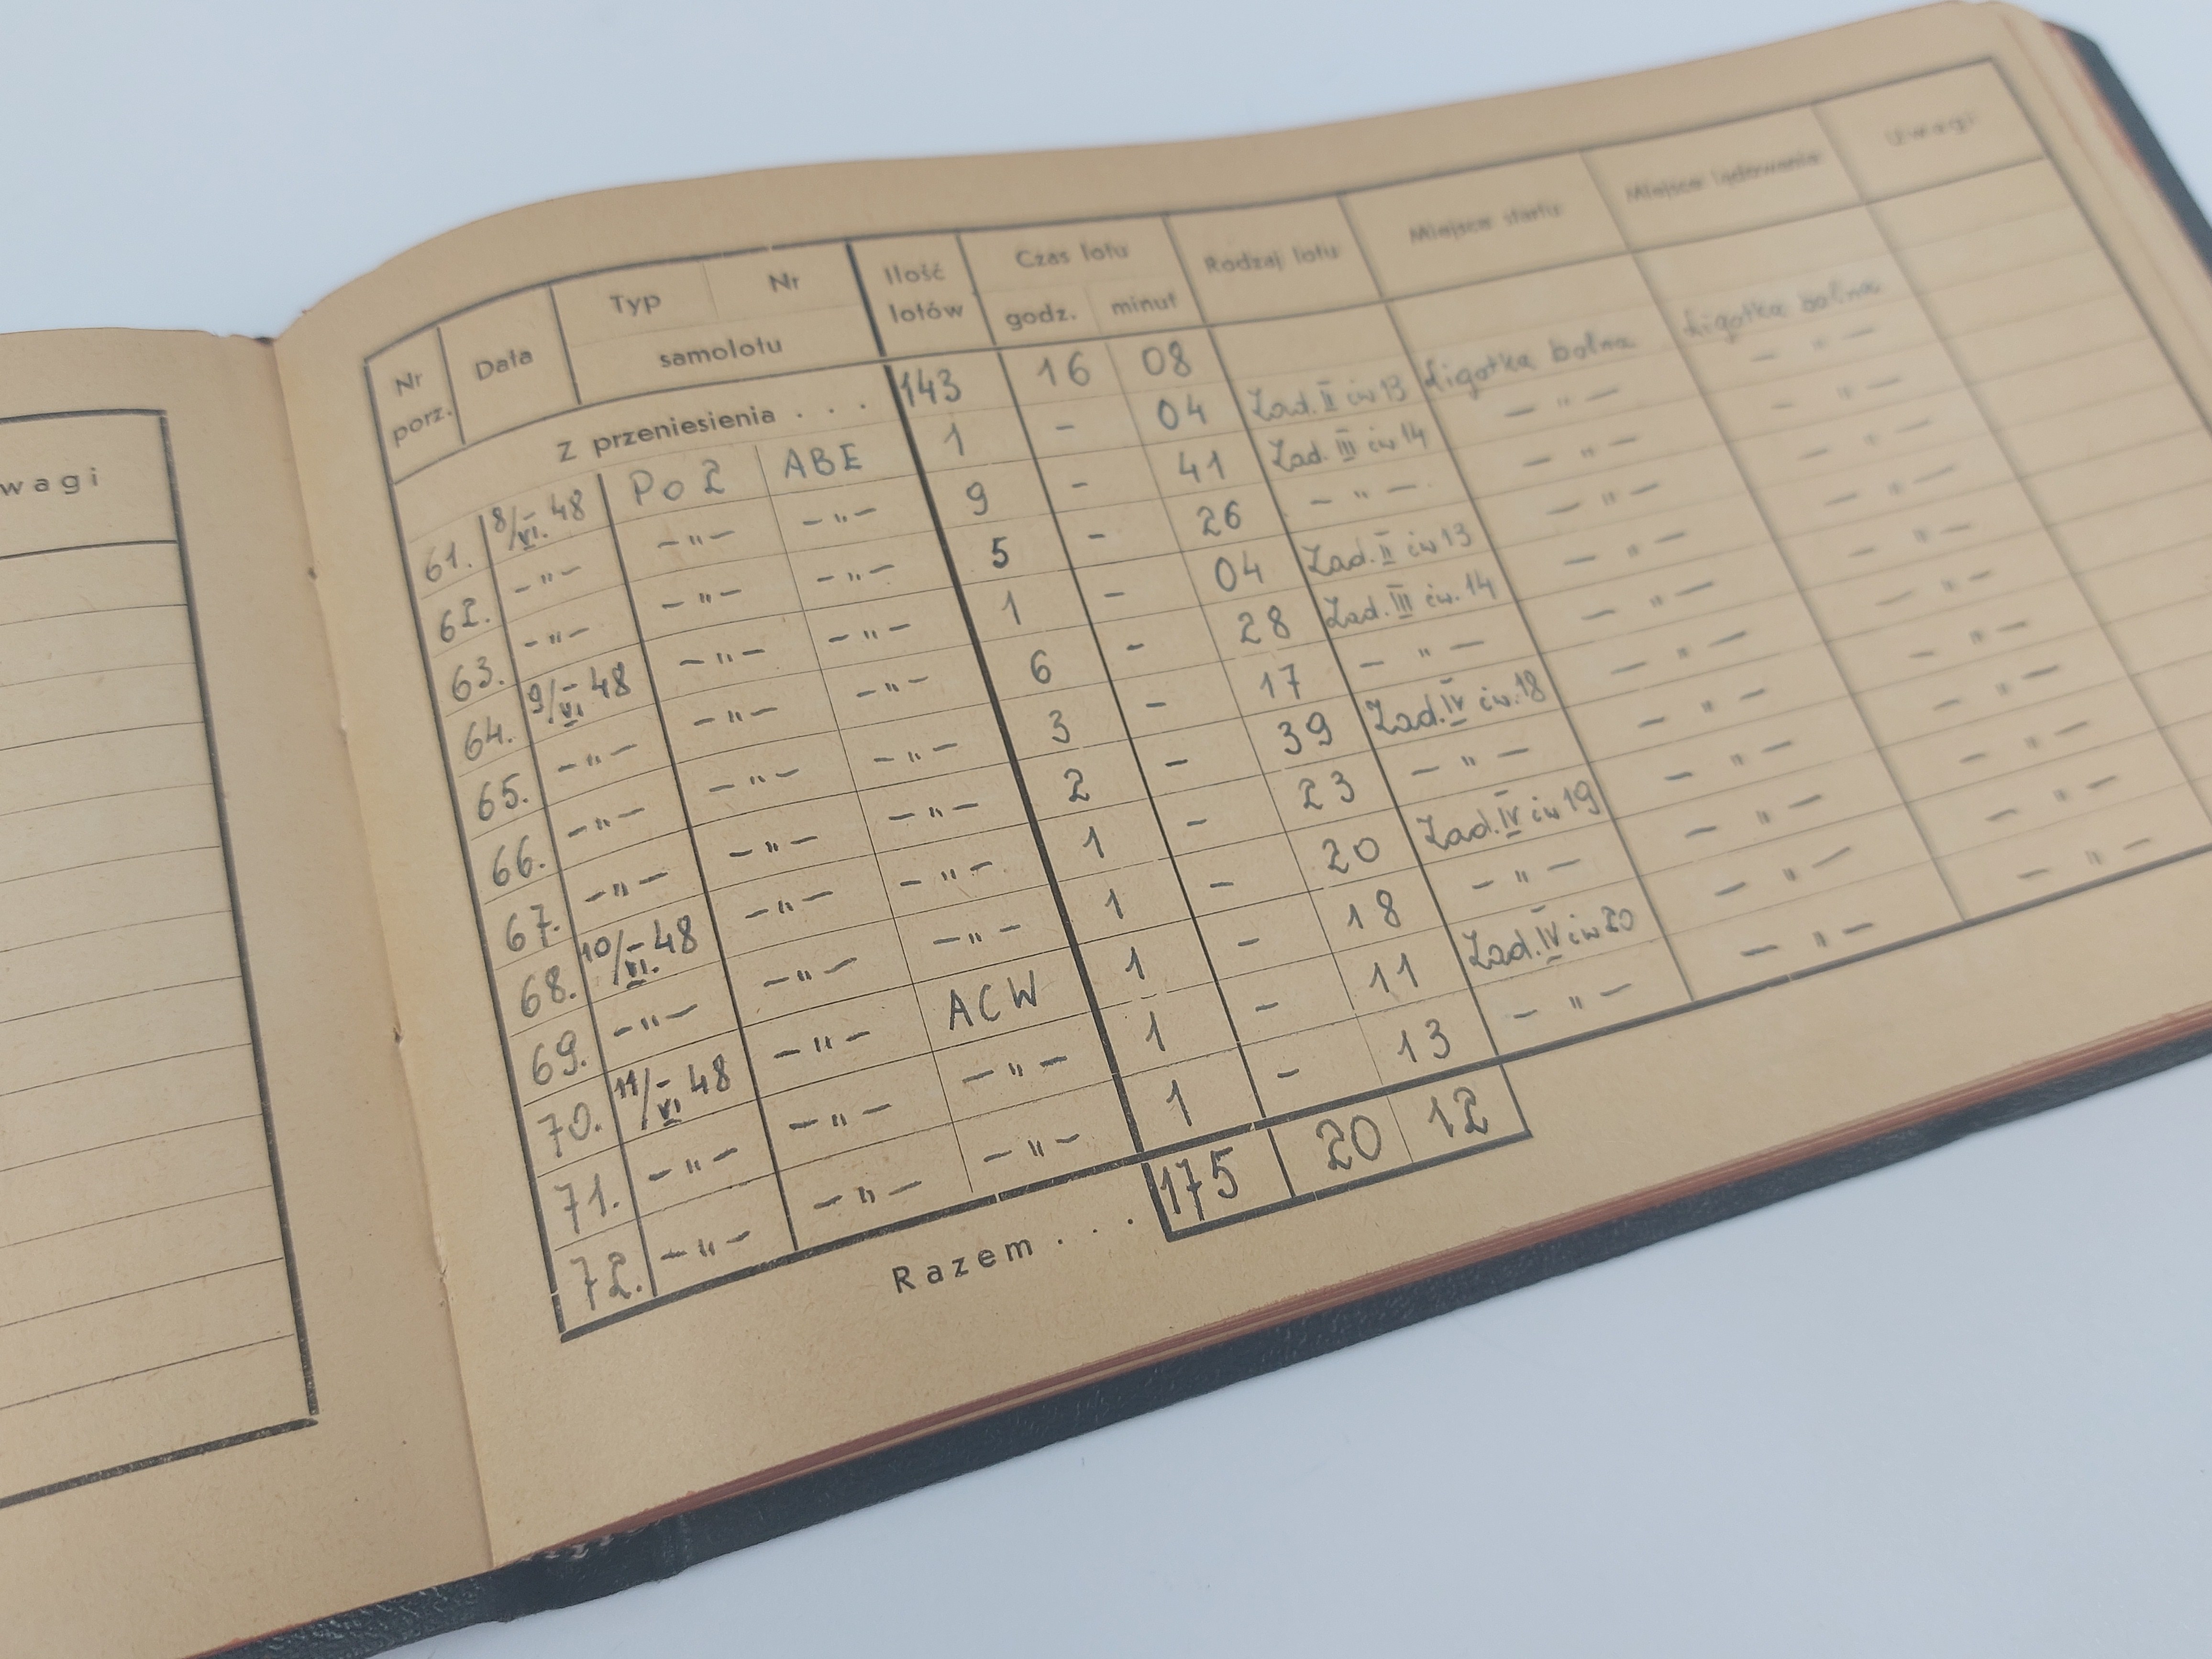 wagi
Nr porz. Data Typ Nr samolotu Ilość lotów Czas lotu godz. minut Rodzaj lotu Miejsce startu Miejsce lądowania Uwagi
Z przeniesienia . . . 143 16 08
61. 8/VI.-48 Po2 ABE 1 - 04 Zad. II ćw 13 Ligotka dolna Ligotka dolna
62. -"- -"- -"- 9 - 41 Zad. III ćw 14 -"- -"-
63. -"- -"- -"- 5 - 26 -"- -"- -"-
64. 9/VI-48 -"- -"- 1 - 04 Zad. II ćw 13 -"- -"-
65. -"- -"- -"- 6 - 28 Zad. III ćw. 14 -"- -"-
66. -"- -"- -"- 3 - 17 -"- -"- -"-
67. -"- -"- -"- 2 - 39 Zad. IV ćw. 18 -"- -"-
68. 10/VI.-48 -"- -"- 1 - 23 -"- -"- -"-
69. -"- -"- -"- 1 - 20 Zad. IV ćw 19 -"- -"-
70. 11/VI-48 -"- ACW 1 - 18 -"- -"- -"-
71. -"- -"- -"- 1 - 11 Zad. IV ćw 20 -"- -"-
72. -"- -"- -"- 1 - 13 -"- -"- -"-
Razem . . . 175 20 12